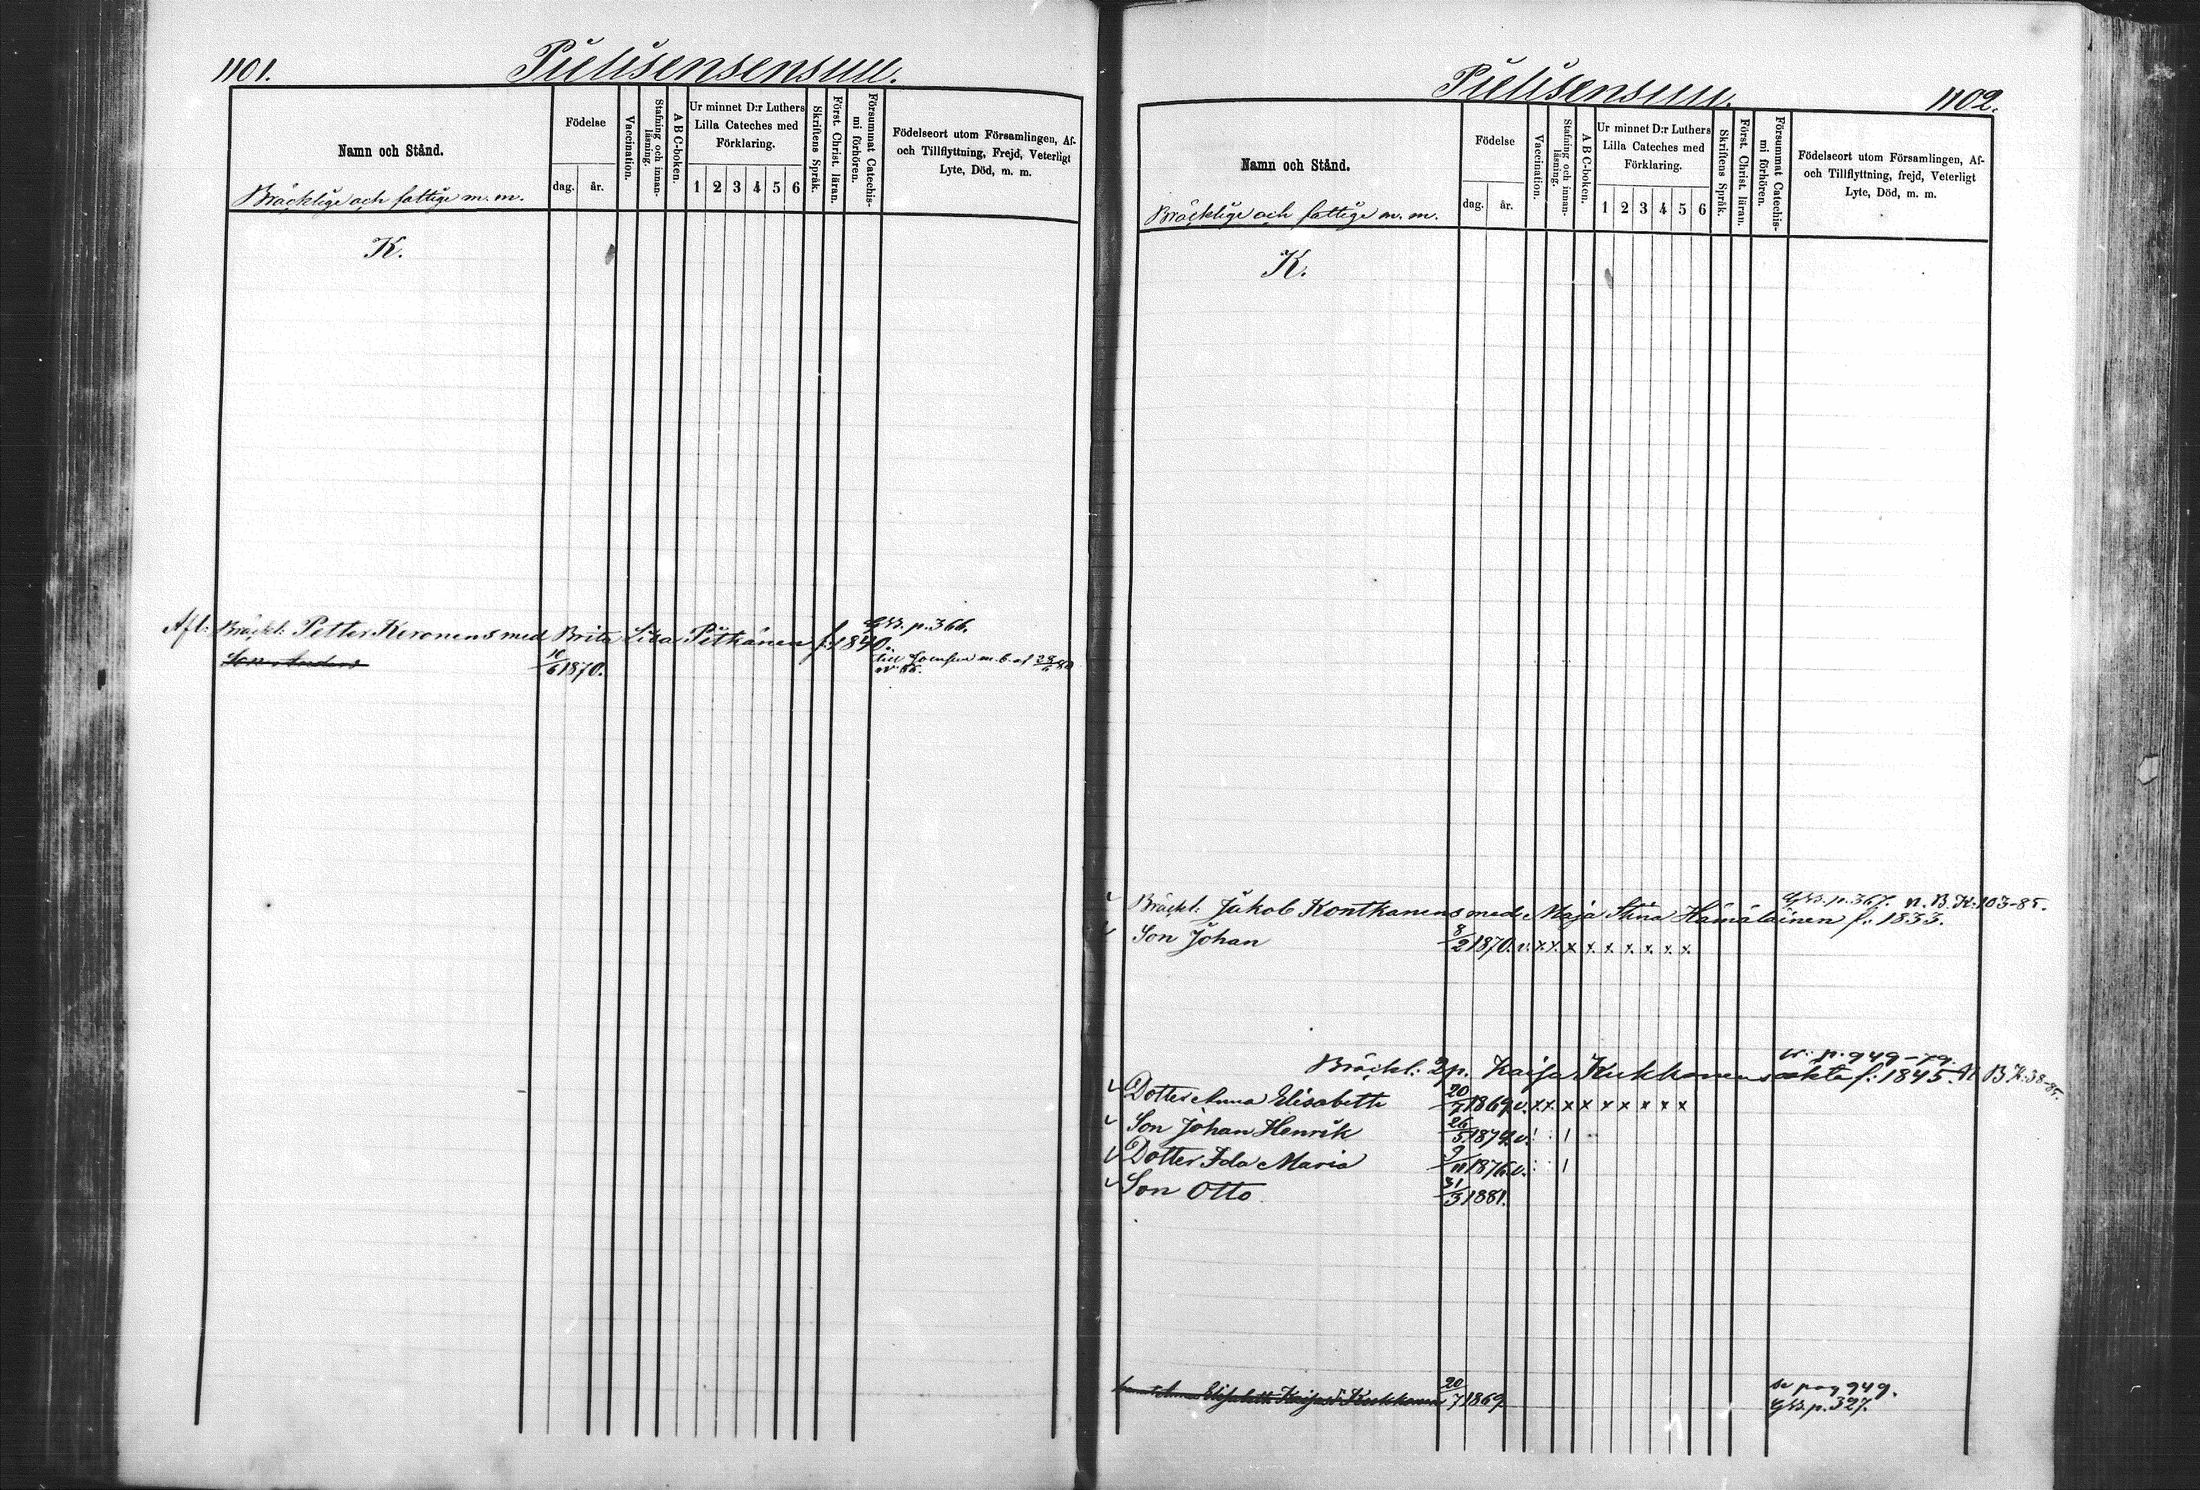 1101.
Pielisensuu.
Namn och Stånd.
Bräcklige och fattige m. m.
Födelse
dag.
år.
Vaccination.
Stafning och innanläsning.
A B C-boken.
Ur minnet D:r Luthers
Lilla Cateches med
Förklaring.
1 2 3 4 5 6
Skriftens Språk.
Först. Christ. läran.
Försummat Catechismi förhören.
Födelseort utom Församlingen, Af-
och Tillflyttning, Frejd, Veterligt
Lyte, Död, m. m.
K.
Gkb. p. 366.
Afl: Bräckl: Petter Keronens med Brita Lisa Pitkänen f: 1840.
Son Anders 10/6 1870. till Joensuu m. b. af 28/6 80
1102.
Pielisensuu.
Namn och Stånd.
Bräcklige och fattige m. m.
Födelse
dag.
år.
Vaccination.
Stafning och innanläsning.
A B C-boken.
Ur minnet D:r Luthers
Lilla Cateches med
Förklaring.
1 2 3 4 5 6
Skriftens Språk.
Först. Christ. läran.
Försummat Catechismi förhören.
Födelseort utom Församlingen, Af-
och Tillflyttning, frejd, Veterligt
Lyte, Död, m. m.
K.
Gkb. p. 367. n. B. K. 103-85.
Bräckl: Jakob Kontkanens med Maja Stina Hämäläinen f: 1833.
Son Johan 8/2 1870. v. x x. x x. x. x. x. x. x.
v: p. 949-79.
Bräckl: 2p. Kaisa Kukkonens oäkta f: 1845. N. B. K. 38-85.
Dotter Anna Elisabeth 20/7 1869 v. x x. x x x x x x x
Son Johan Henrik 26/5 1874 v.
Dotter Ida Maria 9/11 1876 v.
Son Otto 31/3 1881.
Elisabeth Kaisas d. Kukkonen 20/7 1869 se pag 949.
Gkb. p. 327.